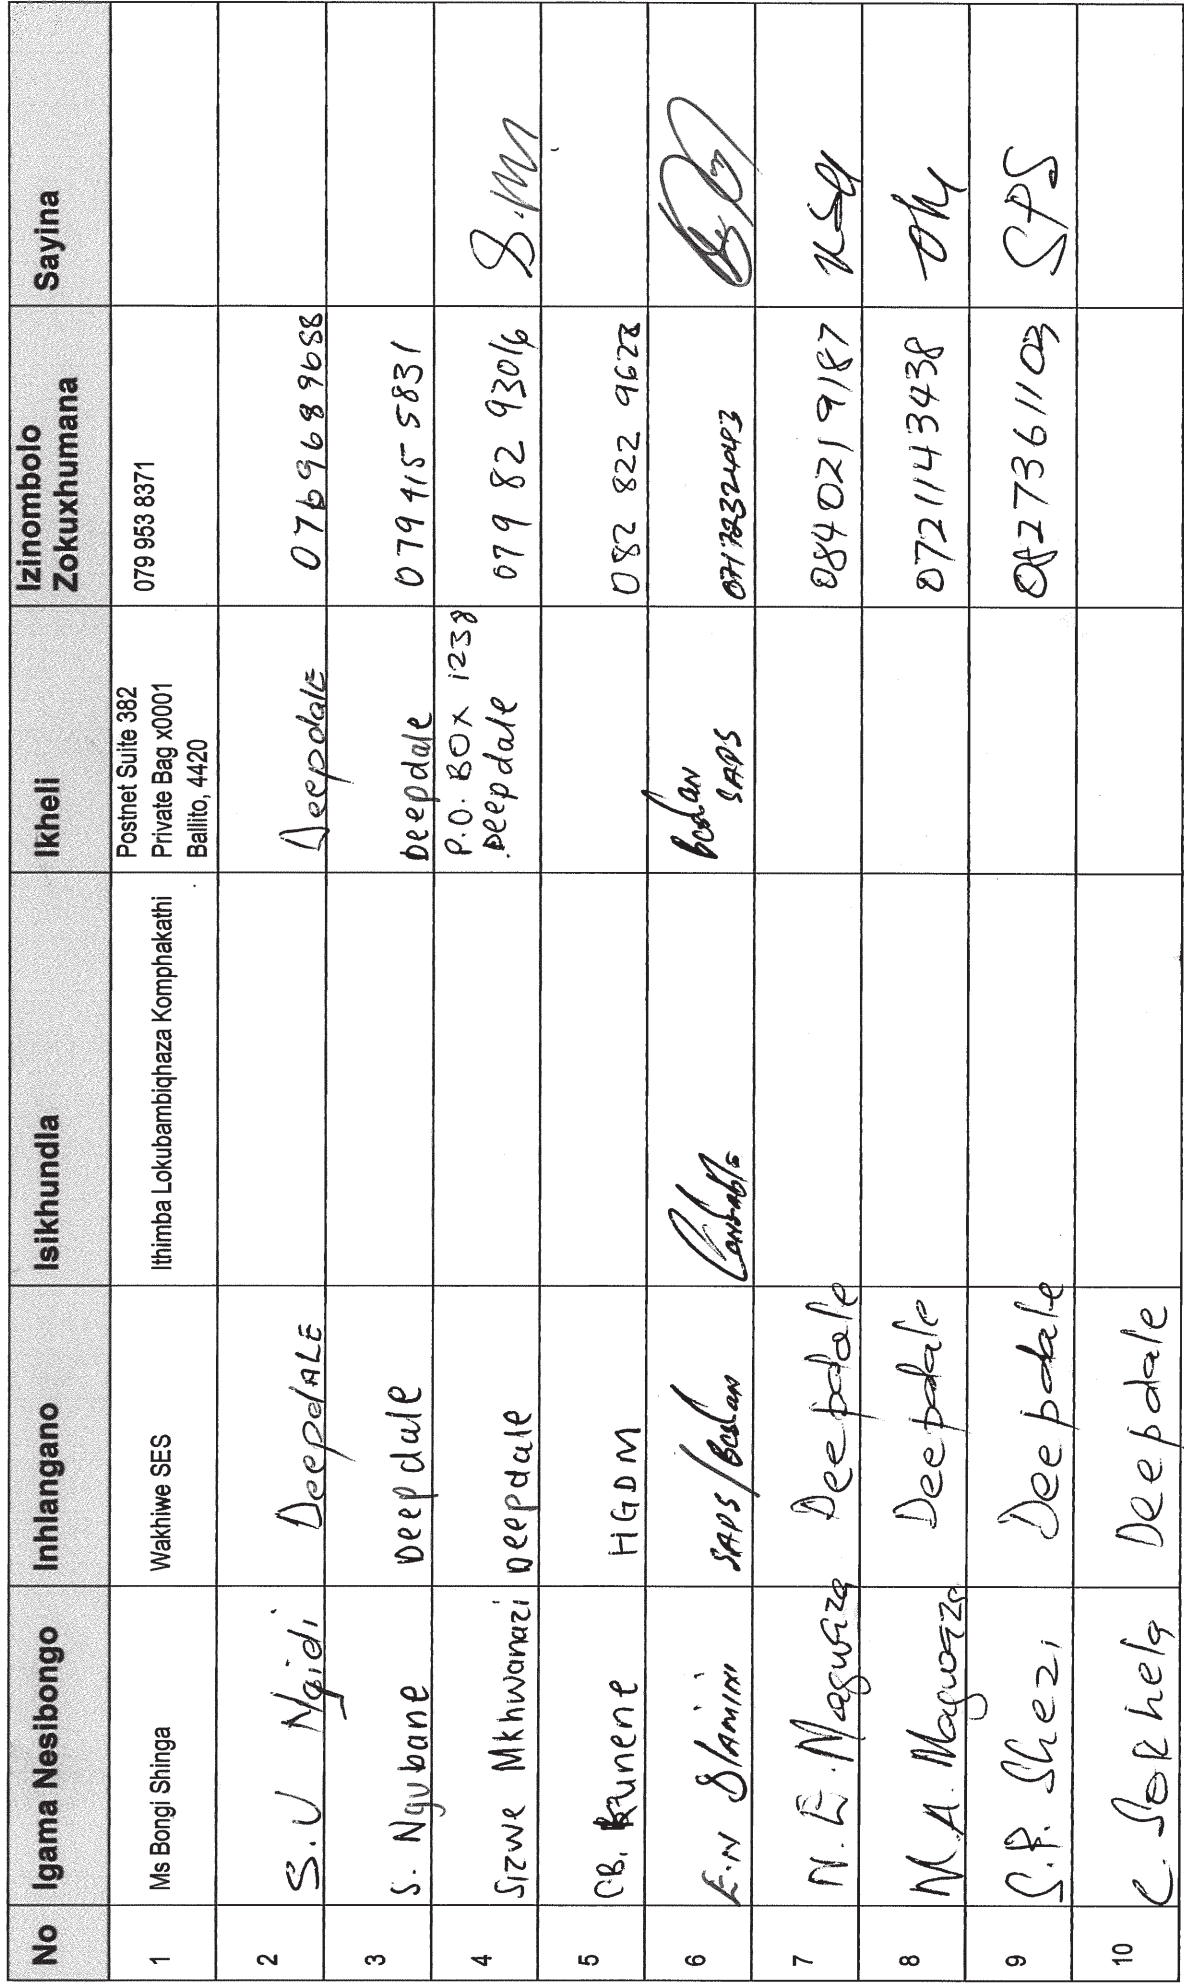 No Igama Nesibongo Inhlangano Isikhundla Ikheli Izinombolo Zokuxhumana Sayina
1 Ms Bongi Shinga Wakhiwe SES Ithimba Lokubambiqhaza Komphakathi Postnet Suite 382
Private Bag x0001
Ballito, 4420
079 953 8371
2 S.U Ngidi DeepdALE Deepdale 0769689688
3 S. Ngubane Deepdale Deepdale 079 415 5831
4 Sizwe Mkhwanazi Deepdale P.O. BOX 1238
Deepdale
079 82 93016 S.M
5 CB. Kunene HGDM 082 822 9628
6 E.N Dlamini SAPS/ Constable
SAPS
0717232443
7 N.E. Magwaza Deepdale 0840219187
8 M.A. Magwaza Deepdale 0721143438
9 S.P. Shezi Deepdale 0827361103 SPS
10 C. Sokhela Deepdale